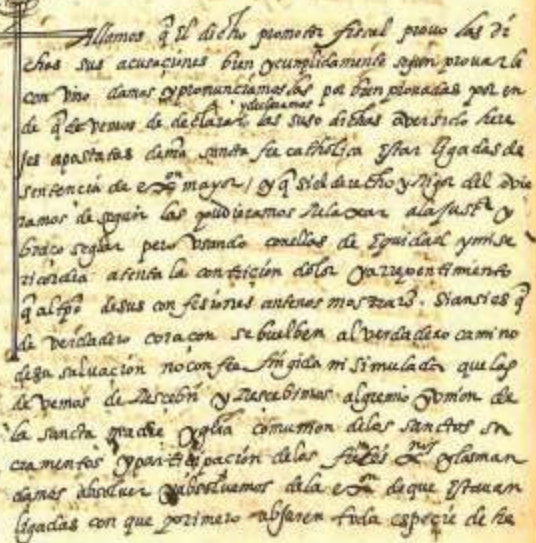 Allamos q̃ el dicho promotor fiscal provo las di
chas sus acusaciones bien y cumplidamente segun provar le
convino damos y pronunciamoslas por bien provadas por en
y declaramos
de q̃ devemos de declarar las suso dichas aver sido here
jes apostatas de nr̃a sancta fee catholica y star ligadas de
sentencia de exon mayor / y q̃ si el derecho y rigor del
ramos de seguir las pudieramos relaxar a la justa y
braço seglar pero usando con ellas de equidad y mise
ricordia atenta la contrición dolor y arrepentimiento
q̃ al tpõ de sus confesiones antenos mostrarõ. si ansi es q̃
de verdadero coraçon se buelben al verdadero camino
de su salvación no con fee fingida ni simulada que las
devemos de rescebir y rescebimos al gremio y union de
la sancta madre yglia comunion de los sanctos sa
cramentos y participación de los fieles xnos y las man
damos absolver y absolvemos de la exon de que estavan
ligadas con que primero abjuren toda especie de he